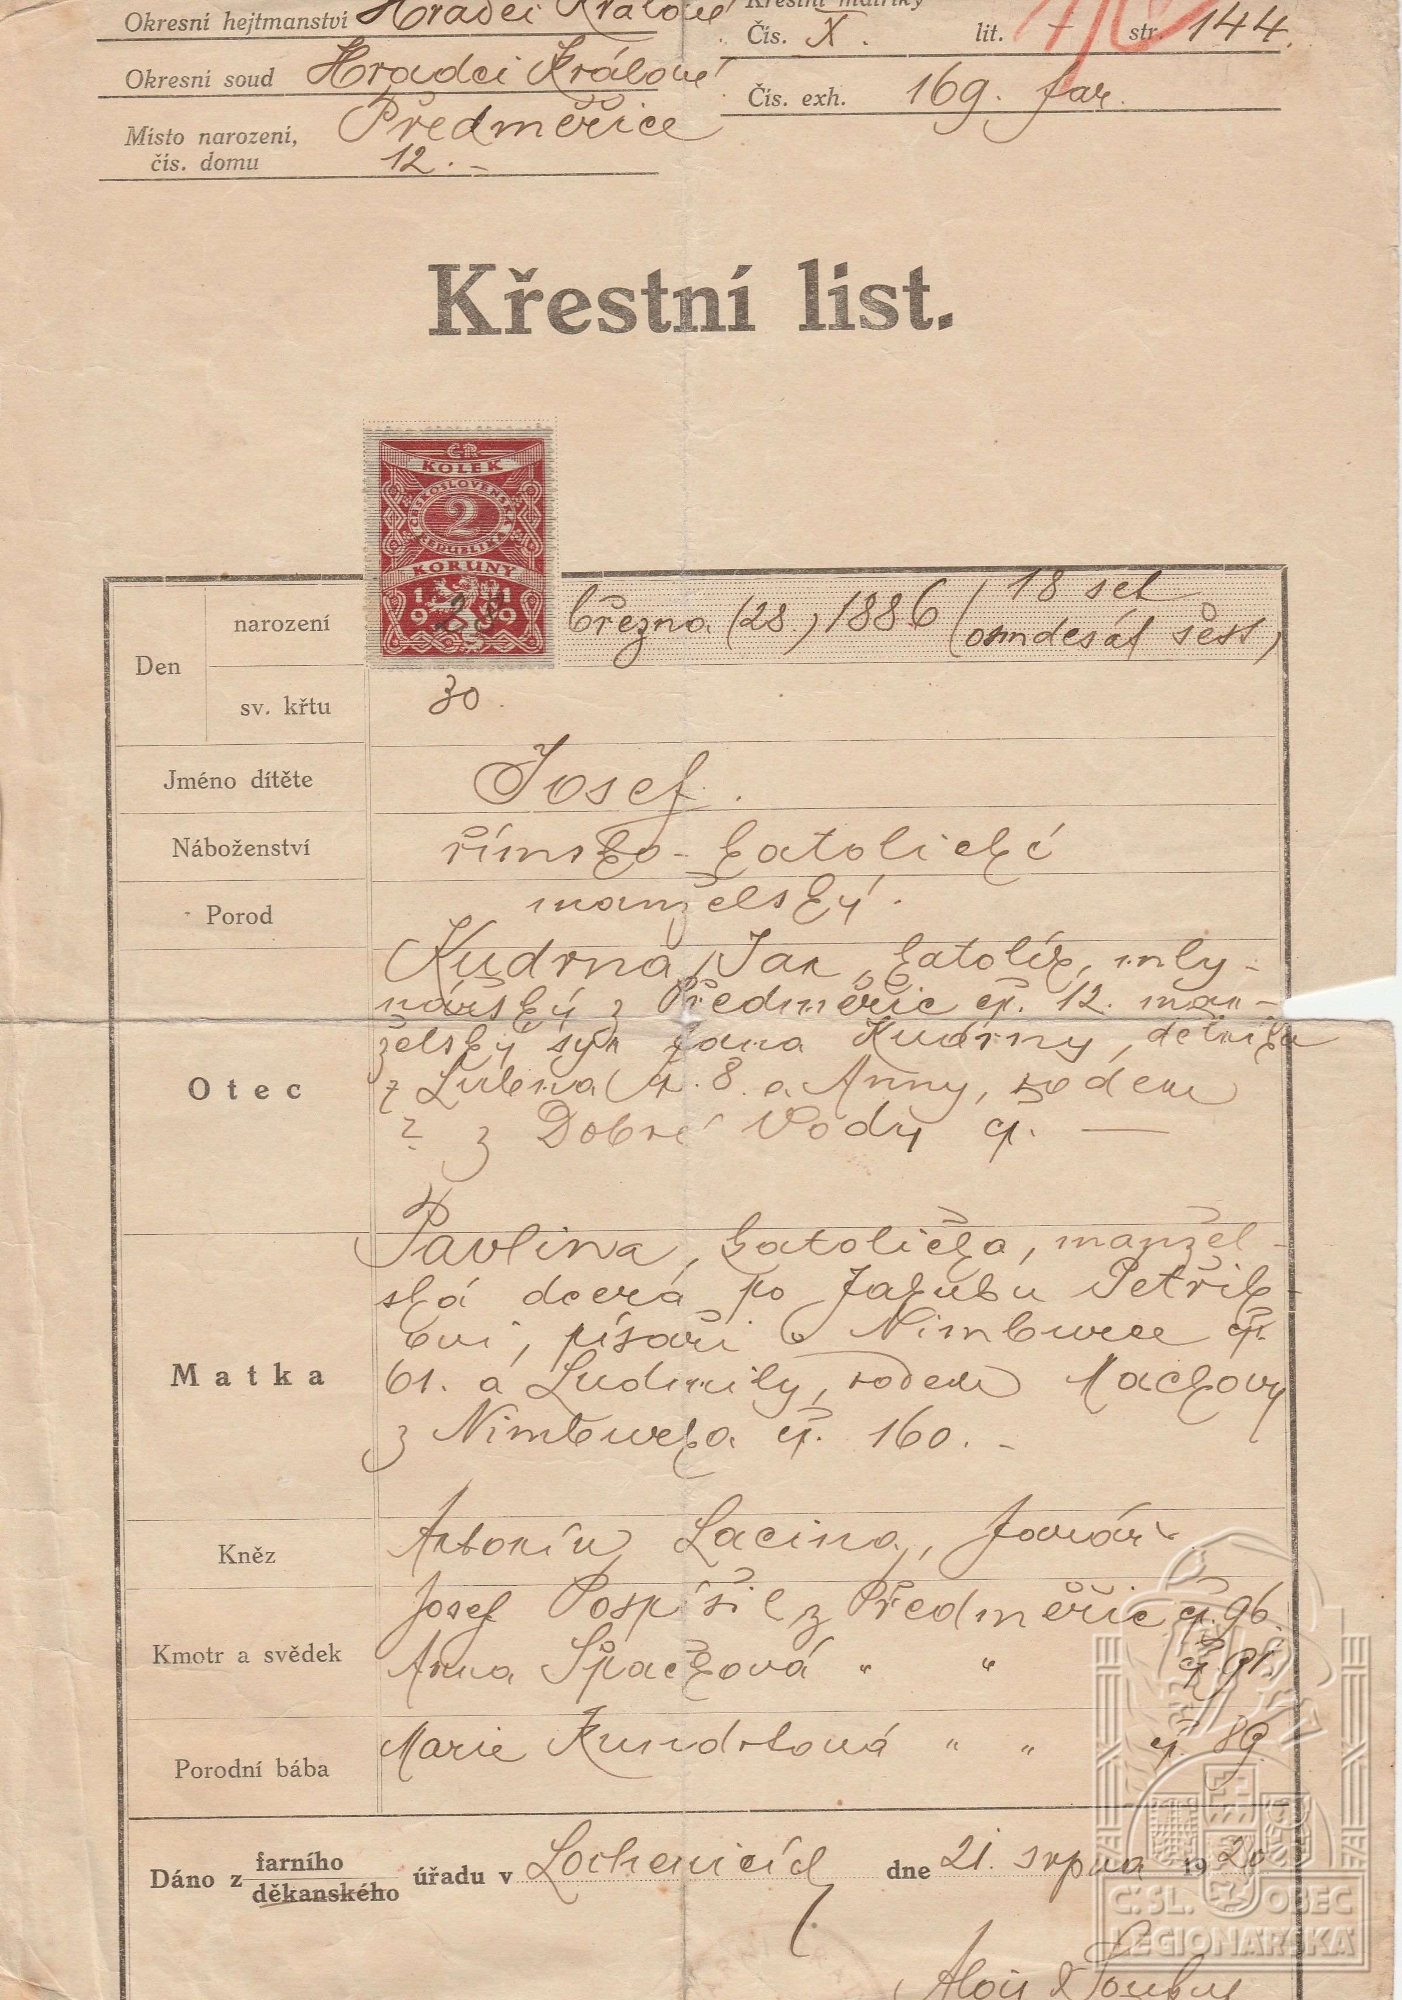 Okresní hejtmanství Hradci Králové
Křestní matriky
Čís. X. lit. — str. 144.
Okresní soud Hradci Králové
Čís. exh. 169. far.
Místo narození, Předměřice
čís. domu 12. –
Křestní list.
ČR
KOLEK
ČESKOSLOVENSKÁ
2
REPUBLIKA
KORUNY
1919
Den narození 28 března (28) 1886 (18 set
osmdesát šest)
sv. křtu 30.
Jméno dítěte Josef.
Náboženství římsko-katolické
Porod manželský.
Otec
Kudrna Jan, katolík, mly-
nářský z Předměřic čp. 12. man-
želský syn Jana Kudrny, dělníka
z Lubna čp. 8. a Anny, rodem
? z Dobré Vody čp. —
Matka
Pavlina, katolička, manžel-
ská dcera po Jakubu Petřil-
kovi, písaři v Nimburce čp.
61. a Ludmily, rodem Machovy
z Nimburka čp. 160. –
Kněz Antonín Lacina, farář
Kmotr a svědek
Josef Pospíšil z Předměřic čp. 96.
Anna Špačková " " čp. 91.
Porodní bába Marie Kundrtová " " čp. 89
Dáno z farního
děkanského úřadu v Lochenicích dne 21. srpna 1920
Alois
Č. SL. OBEC
LEGIONÁŘSKÁ